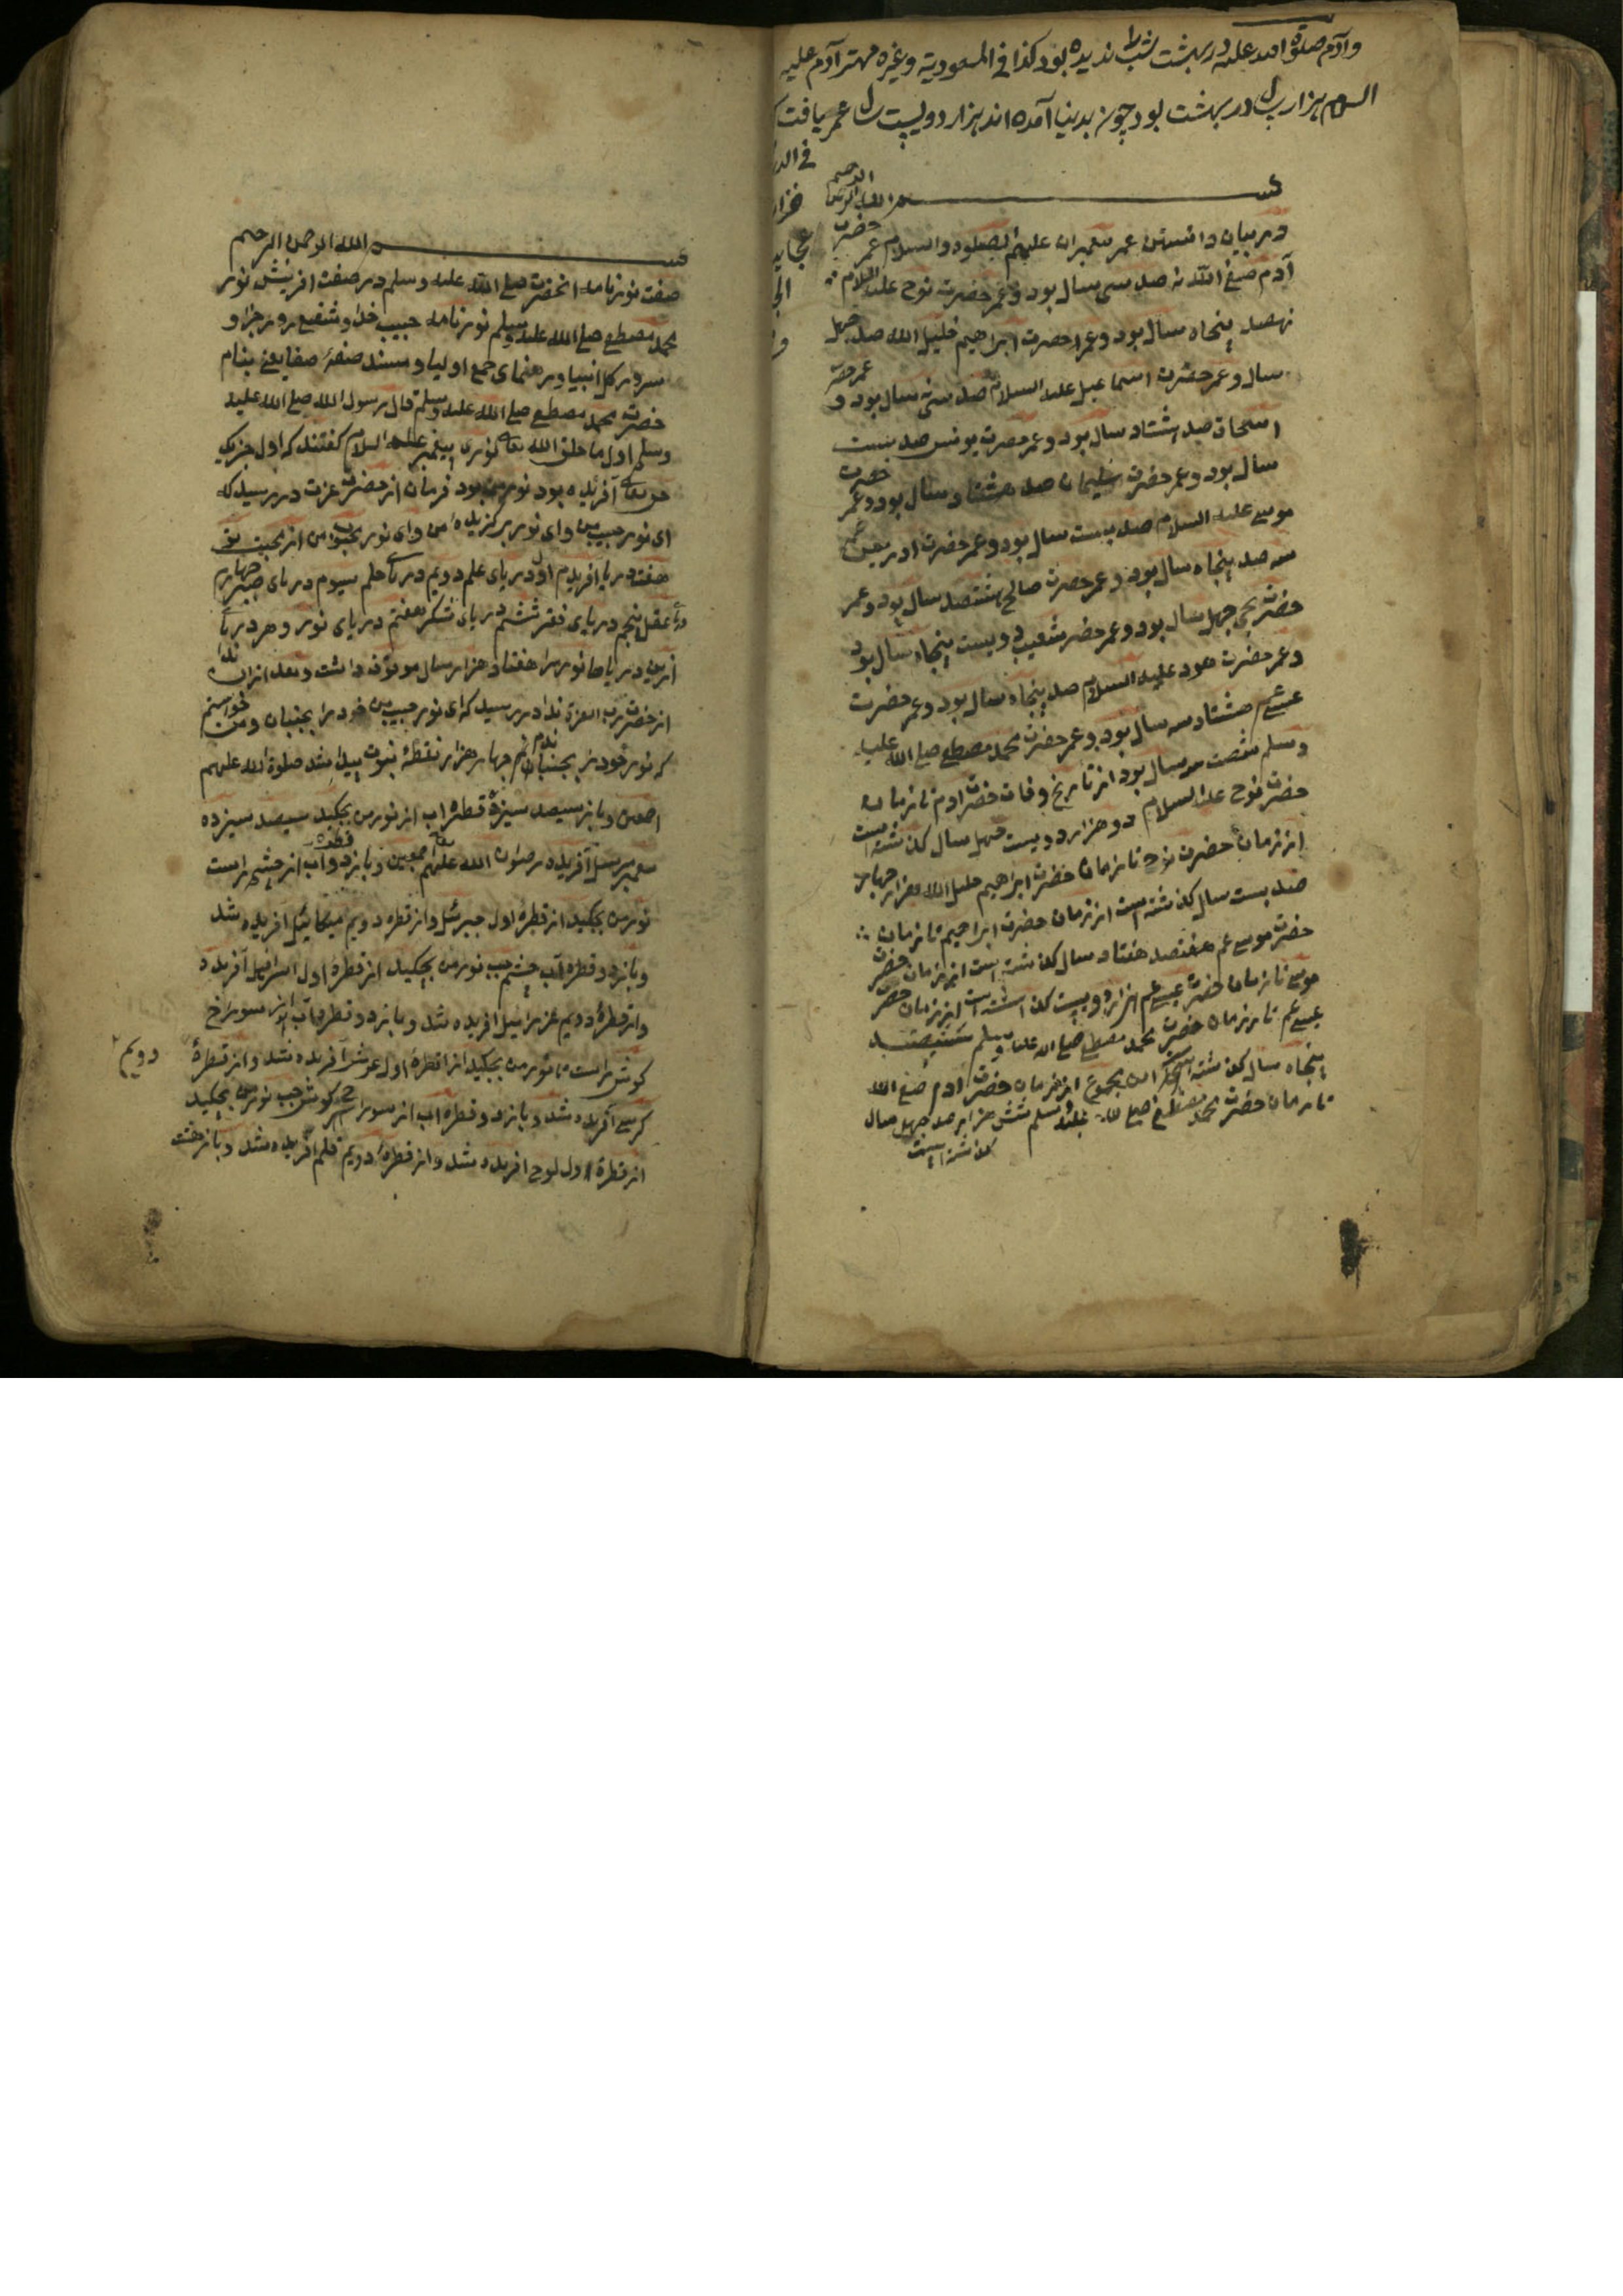 وآدم صلوة الله علیه در بهشت شب ندیده بود کذا فی المسعودیة وغیره مهتر آدم علیه
السلام هزار سال در بهشت بود چون بدنیا آمده اند هزار دویست سال عمر یافت
فی الد
خزا
عجایب
بسم الله الرحمن الرحیم
در بیان دانستن عمر پیغمبران علیهم الصلوة والسلام عمر حضرت
آدم صفی الله نه صد سی سال بود وعمر حضرت نوح علیه السلام
نهصد پنجاه سال بود وعمر حضرت ابراهیم خلیل الله صد چهل
سال وعمر حضرت اسماعیل علیه السلام صد سی سال بود و عمر حضرت
اسحاق صد هشتاد سال بود وعمر حضرت یونس صد بیست
سال بود وعمر حضرت سلیمان صد هشتاد سال بود وعمر حضرت
موسی علیه السلام صد بیست سال بود وعمر حضرت ادریس
سه صد پنجاه سال بود وعمر حضرت صالح هشتصد سال بود وعمر
حضرت یحیی چهل سال بود وعمر حضرت شعیب دویست پنجاه سال بود
وعمر حضرت هود علیه السلام صد پنجاه سال بود وعمر حضرت
عیسی هشتاد سه سال بود وعمر حضرت محمد مصطفی صلی الله علیه
وسلم شصت سه سال بود از تاریخ وفات حضرت ادم تا زمان
حضرت نوح علیه السلام دو هزار دویست چهل سال کذشته است
از زمان حضرت نوح تا زمان حضرت ابراهیم خلیل الله هزار چهار
صد بست سال کذشته است از زمان حضرت ابراهیم تا زمان
حضرت موسی عم هفتصد هفتاد سال کذشته است از زمان حضرت
موسی تا زمان حضرت عیسی عم هزار دویست کذشته است از زمان حضرت
عیسی عم تا زمان حضرت محمد مصطفی صلی الله علیه وسلم ششصد
پنجاه سال کذشته این مجموع از زمان حضرت ادم صفی الله
تا زمان حضرت محمد مصطفی صلی الله علیه وسلم شش هزار صد چهل سال
کذشته است
بسم الله الرحمن الرحیم
صفت نورنامه انحضرت صلی الله علیه وسلم در صفت افرینش نور
محمد مصطفی صلی الله علیه وسلم نورنامه حبیب خدا وشفیع روز جزا و
سرور کل انبیا ورهنمای جمع اولیا ومسند صفهٔ صفا یعنی بنام
حضرت محمد مصطفی صلی الله علیه وسلم قال رسول الله صلی الله علیه
وسلم اول ما خلق الله تعالی نوری پیغمبر علیه السلام کفتند که اول چیزیکه
حق تعالی آفریده بود نور من بود فرمان از حضرت عزت در رسید که
ای نور حبیب من وای نور برکزیدهٔ من وای نور محبوب من از محبت تو
هفت دریا افریدم اول دریای علم دویم دریای حلم سیوم دریای صبر چهارم
دریای عقل پنجم دریای فقر ششم دریای شکر هفتم دریای نور وهر دریا
ازین دریاها نور را هفتاد هزار سال موقوف داشت وبعد ازان ندا
از حضرت رب العزة ندا در رسید که ای نور حبیب من خود را بجنبان ومن خواستم
که نور خود را بجنبانم چهار هزار نقطهٔ نبوت پیدا شد صلوة الله علیهم
اجمعین وباز سیصد سیزده قطره اب از نور من بچکید سیصد سیزده
پیغمبر مرسل آفریده رضوان الله تعالی علیهم اجمعین وباز دو قطره آب از چشم راست
نور من بچکید از قطرهٔ اول جبرئیل واز قطره دویم میکائیل آفریده شد
وباز دو قطره آب چشم چپ نور من بچکید از قطرهٔ اول اسرافیل آفریده
واز قطرهٔ دویم عزرائیل افریده شد وباز دو قطره آب از سوراخ
کوش راست نور من بچکید از قطرهٔ اول عرش آفریده شد واز قطرهٔ دویم
کرسی آفریده شد وباز دو قطره اب از سوراخ کوش چپ نور من بچکید
از قطرهٔ اول لوح افریده شد واز قطرهٔ دویم قلم افریده شد وباز هشت